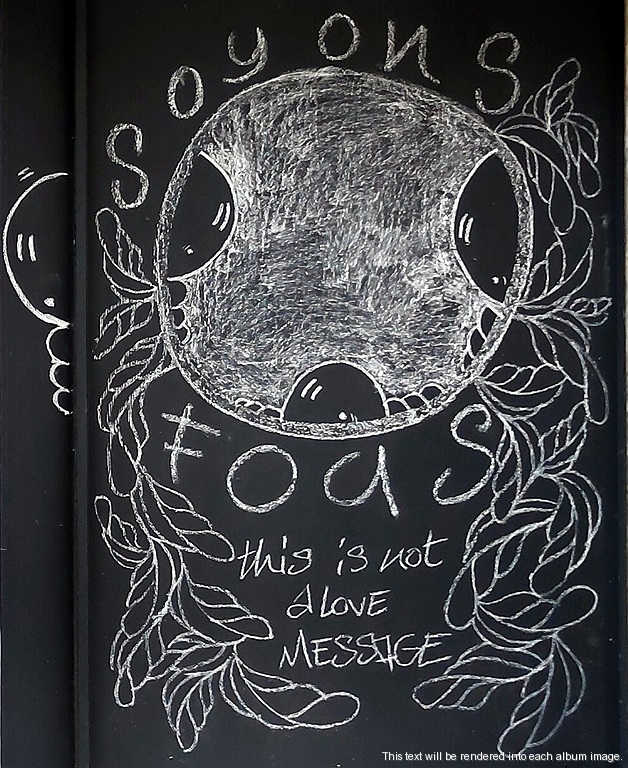 soyons
FOUS
this is not
A LOVE
MESSAGE
This text will be rendered into each album image.